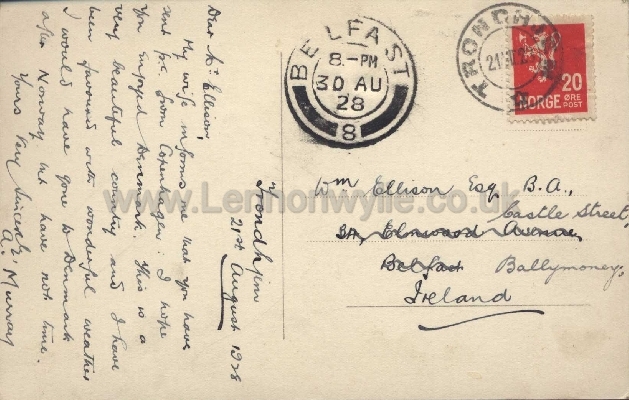 Trondhjem
21st August 1928
Dear Mr Ellison,
My wife informs me that you have
sent p.c. from Copenhagen. I hope
you enjoyed Denmark. This is a
very beautiful country and I have
been favoured with wonderful weather
I would have gone to Denmark
after Norway but have not time.
Yours very sincerely
A. Murray
BELFAST
8 - PM
30 AU
28
8
TRONDHJEM
20
NORGE ØRE
POST
Wm Ellison Esq. B.A.,
Castle Street,
3A, Elmwood Avenue,
Belfast Ballymoney,
Ireland
www.Lennonwylie.co.uk